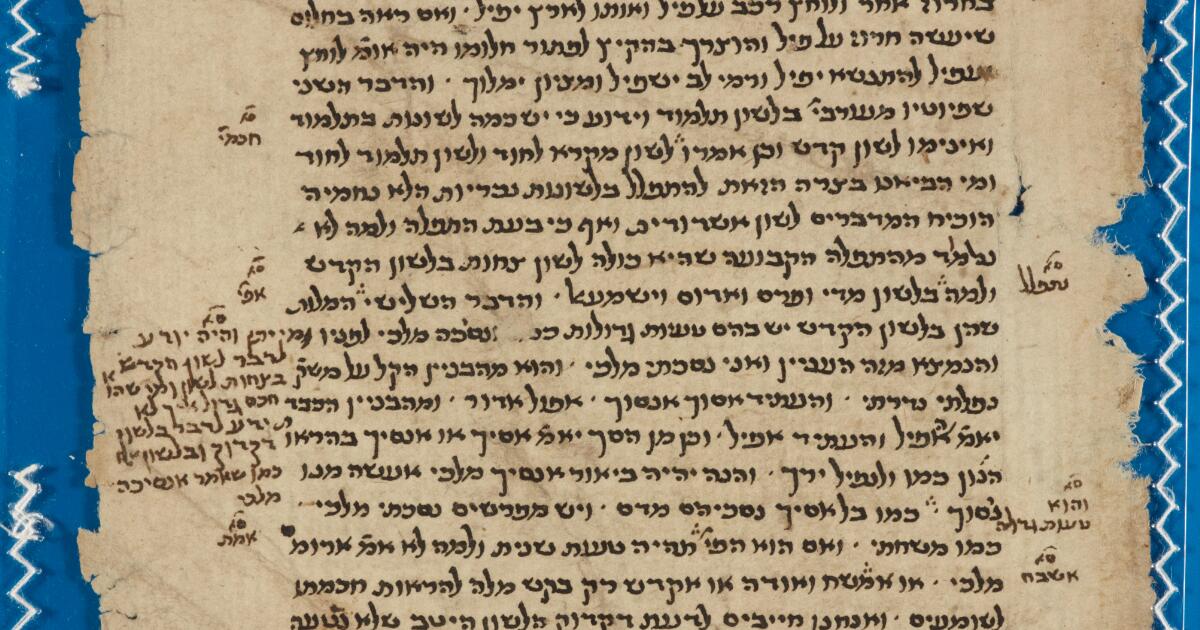 בחרוז אחר ונוחץ רכב על פיל ואותו לארץ יפיל ׳ ואם ראה בחלום
שיעשה חרוז על פיל והוצרך בהקיץ לפתור חלומו היה אומ׳ לוחץ
אפיל להתנשא יפיל ורמי לב ישפיל ומציון ימלוך ׳ והדבר השני
שפיוטיו מעורבי׳ בלשון תלמוד וידוע כי יש כמה לשונות בתלמוד
ואינימו לשון קדש וכן אמרו לשון מקרא לחוד ולשון תלמוד לחוד
ומי הביאנו בצרה הזאת להתפלל בלשונות נכריות הלא נחמיה
הוכיח המדברים לשון אשדודית ואף כי בעת התפלה ולמה לא
נלמד מהתפלה הקבועה שהיא כולה לשון צחות בלשון הקדש
ולמה בלשון מדי ופרס ואדום וישמעאל ׳ והדבר השלישי המלות
שהן בלשון הקדש יש בהם טעות גדולות כמ נסכה מלכי לפניו
והנמצא מזה העניין ואני נסכתי מלכי ׳ והוא מהבניין הקל על משק׳
נפלתי נדרתי ׳ והעתיד אסוך אנסוך ׳ אפול אדור ׳ ומהבניין הכבד
יאמ׳ אפיל והעתיד אפיל ׳ וכן מן הסך יאמ׳ אסיך או אנסיך בהראו׳
הנון כמו ולנפיל ירך ׳ והנה יהיה ביאור אנסיך מלכי אעשה ממנו
נסוך כמו בל אסיך נסכיהם מדם ׳ ויש מפרשים נסכתי מלכי
כמו משחתי ׳ ואם הוא הפי׳ תהיה טעות שנית ולמה לא אמ׳ ארומם
מלכי ׳ או אמשח ואודה או אקדש רק בקש מלה להראות חכמתו
לשומעים ׳ ואנחנו חייבים לדעת דקדוק הלשון היטב שלא נטעה
ס״א
חכמי׳
ס״א
אפי׳
ס״א
והיה יודע
לדבר לשון הקדש
בצחות לשון
חכם גדול איך לא
ידע לדבר בלשון
דקדוק ובלשון
כמו שאמר אנסיכה
מלכי
ס״א
אמת
ס״א
נתפלל
ס״א
והוא
טעות גדולה
ס״א
אשבח